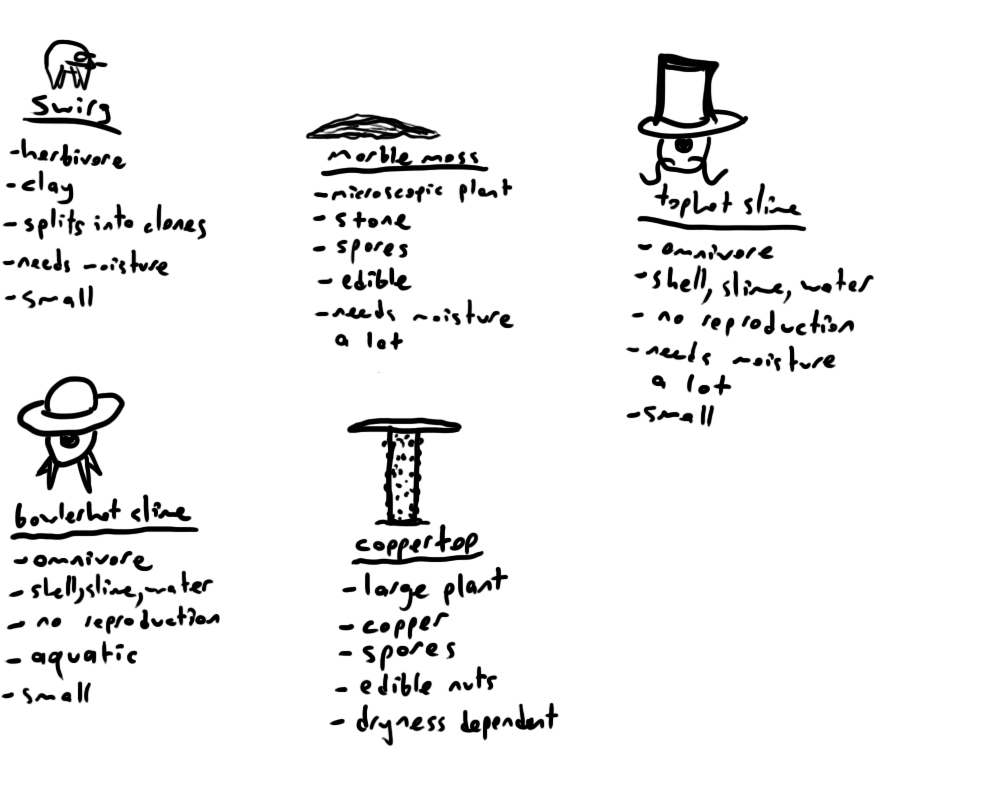 swirg
-herbivore
-clay
-splits into clones
-needs moisture
-small
marble moss
-microscopic plant
-stone
-spores
-edible
-needs moisture
a lot
tophat slime
-omnivore
-shell, slime, water
-no reproduction
-needs moisture
a lot
-small
bowlerhat slime
-omnivore
-shell, slime, water
-no reproduction
-aquatic
-small
coppertop
-large plant
-copper
-spores
-edible nuts
-dryness dependent